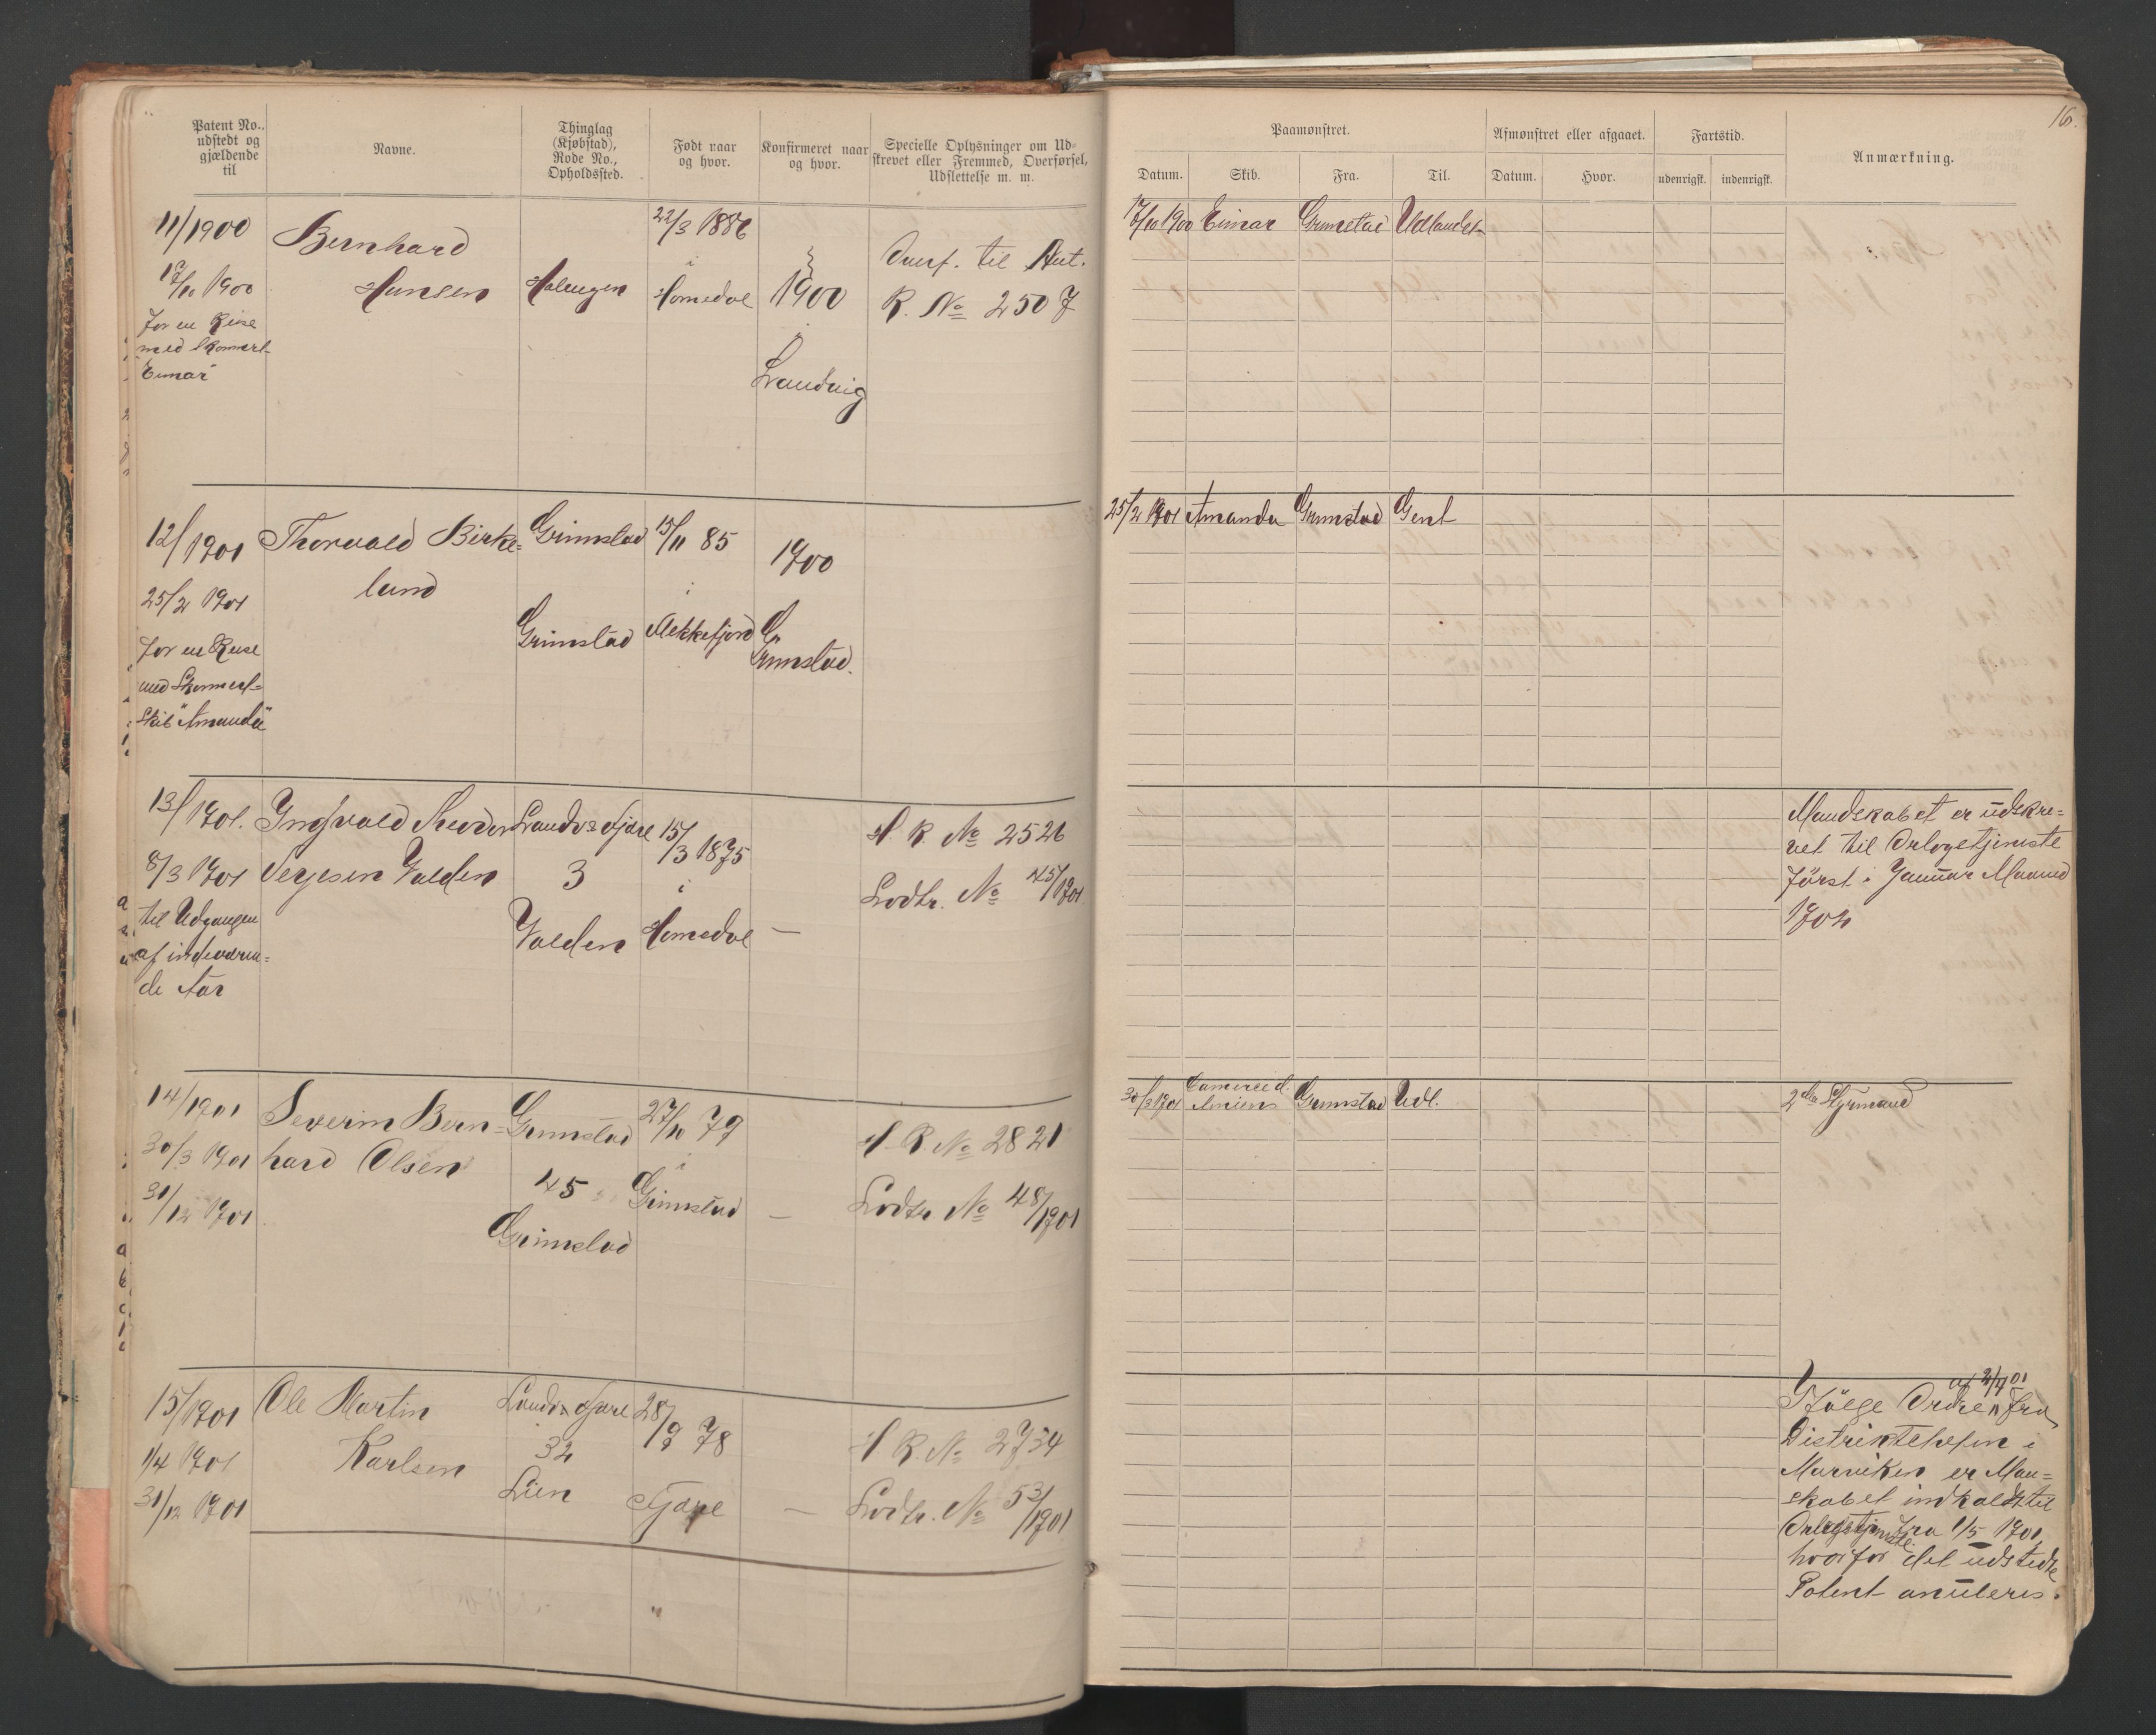 16.
Patent No., udstedt og gjældende til
Navne.
Thinglag (Kjøbstad), Rode No., Opholdssted.
Født naar og hvor.
Konfirmeret naar og hvor.
Specielle Oplysninger om Udskrevet eller Fremmed, Overførsel, Udslettelse m. m.
Paamønstret.
Afmønstret eller afgaaet.
Fartstid.
Anmærkning.
Datum.
Skib.
Fra.
Til.
Datum.
Hvor.
udenrigsk.
indenrigsk.
11/1900
17/10 1900
For en Reise
med Skonnert
"Eimar"
Bernhard
Hansen
22/3 1886
i
Homedal
1900
i
Landvig
Overf. til Ant.
R. No 2507
17/10 1900 Eimar Grimstad Udlandet
12/1901
25/2 1901
For en Reise
med Skonnert-
Skib "Amanda"
Thorvald Birke=
land
Grimstad
Grimstad
15/11 85
i
Flekkefjord
1900
Grimstad.
25/2 1901 Amanda Grimstad Gent
13/1901.
8/3 1901
til Udgangen
af indeværen=
de Aar
Landv & Fjære
3
15/3 1875
i
Homedal
—
H. R. No 2526
Lodtr. No 45/1901
Mandskabet er udskre=
vet til Orlogstjeneste
først i Januar Maaned
1902
14/1901
30/3 1901
31/12 1901
Severin Bern=
hard Olsen
Grimstad
45
Grimstad
27/10 79
i
Grimstad
—
H. R. No 2821
Lodtr No 48/1901
30/3 1901
Grimstad Udl.
2den Styrmand
15/1901
1/4 1901
31/12 1901
Ole Martin
Karlsen
Landv & Fjære
32
Lien
28/9 78
Fjære
—
H R. No 2754
Lodtr. No 53/1901
Ifölge Ordre af 2/4 01 fra
Distriktschefen i
Marviken er Man=
skabet indkaldt til
Orlogstjeneste fra 1/5 1901,
hvorfor det udstedte
Patent anuleres.